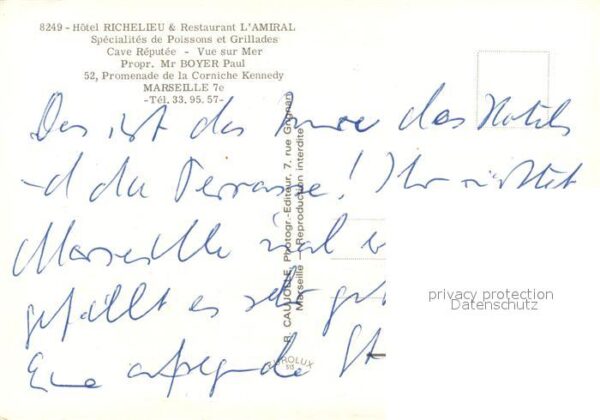 8249 - Hôtel RICHELIEU & Restaurant L'AMIRAL
Spécialités de Poissons et Grillades
Cave Réputée - Vue sur Mer
Propr. Mr BOYER Paul
52, Promenade de la Corniche Kennedy
MARSEILLE 7e
-Tél. 33. 95. 57-
Das ist das Innere des Hotels
die Terrasse! Ihr
Marseille mal
gefällt es sehr gut
Eine aufregende St
R. CAUJOLLE, Photogr.-Editeur, 7, rue Grignan
Marseille — Reproduction interdite
privacy protection
Datenschutz